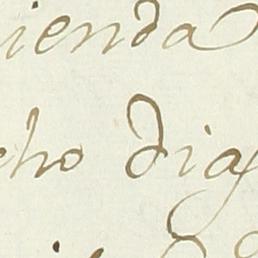 ienda
cho dia